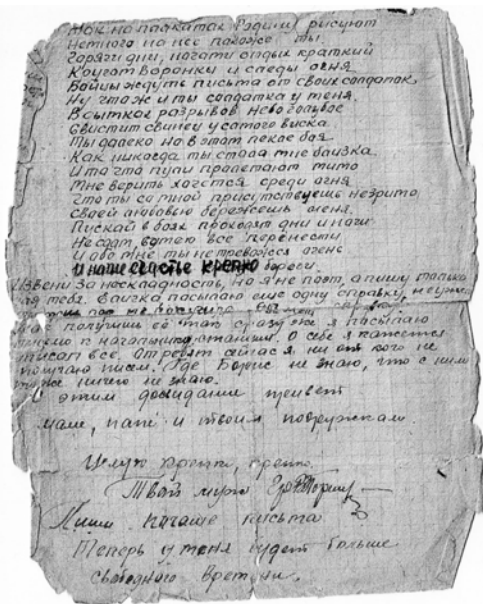 Как на плакатах Родину рисуют
Немного на нее похожа ты.
Горячи дни, ночами отдых краткий
Кругом воронки и следы огня
Бойцы ждуть письма от своих солдаток,
Ну что ж и ты солдатка у меня.
В сытках разрывов небо голубое
Свистит свинец у самого виска.
Ты далеко но в этот пекле боя
Как никогда ты стала мне близка.
И та что пули пролетают мимо
Мне верить хочется среди огня
Что ты со мной присутствуешь незримо,
Своей любовью бережешь меня,
Пускай в боях проходят дни и ночи
Не сдам, вутею все перенести
И обо мне ты не тревожся очень
И наше счастье крепко береги.
Извени за нескладность, но я не поэт, а пишу только
для тебя. посылаю еще одну справку,
получишь её так сразу же я посылаю
О себе я кажется
описал все. От ребят сейчас я ни от кого не
получаю писем. Где Борис не знаю, что с ним
тоже ничего не знаю.
С этим досвидание привет
маме, папе и твоим подружкам
Целую крепко, крепко.
Твой муж
Пиши почаще письма
Теперь у меня будет больше
свободного времени.